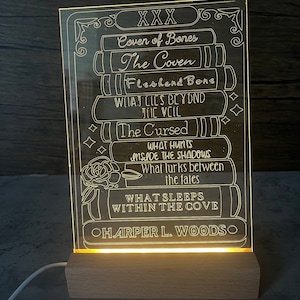 XXX
Coven of Bones
The Coven
Flesh and Bone
WHAT LIES BEYOND
THE VEIL
The Cursed
WHAT HUNTS
INSIDE THE SHADOWS
What lurks between
the fates
WHAT SLEEPS
WITHIN THE COVE
HARPER L. WOODS